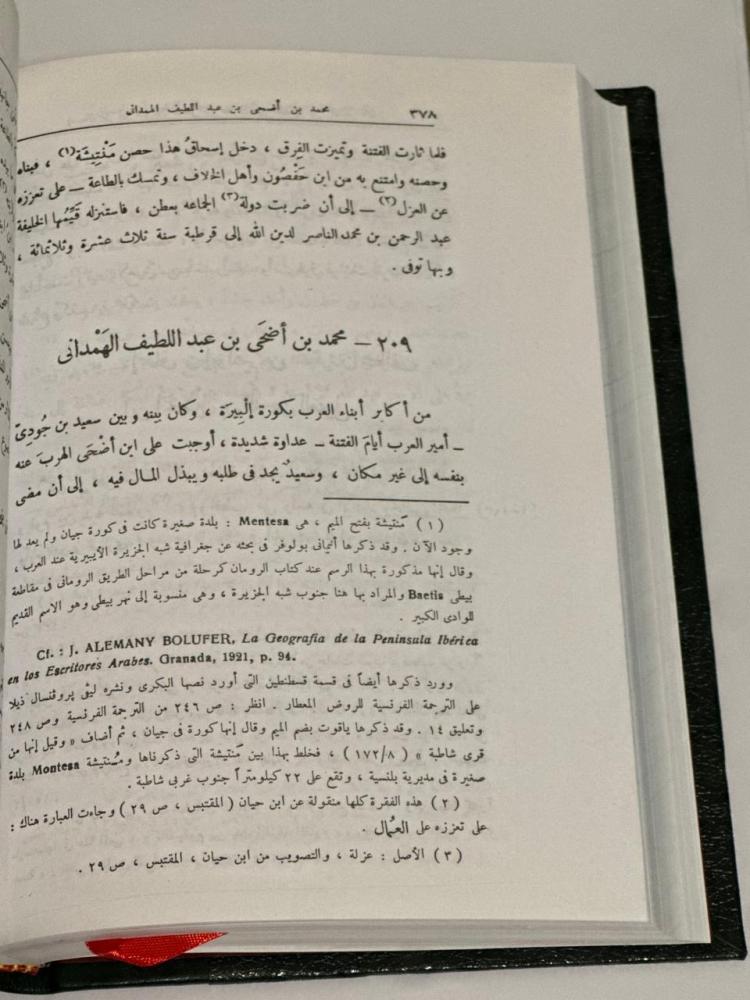 ٣٧٨ محمد بن أضحى بن عبد اللطيف الهمدانى
فلما ثارت الفتنة وتميزت الفِرق ، دخل إسحاقُ هذا حصن مَنْتِيشَة(١) ، فبناه
وحصنه وامتنع به من ابن حَفْصُون وأهل الخلاف ، وتمسك بالطاعة ــ على تعززه
عن العزل(٢) ــ إلى أن ضربت دولة(٣) الجماعه بعطن ، فاستنزله قَيِّمُها الخليفة
عبد الرحمن بن محمد الناصر لدين الله إلى قرطبة سنة ثلاث عشرة وثلاثمائة ،
وبها توفى .
٢٠٩ ــ محمد بن أضحَى بن عبد اللطيف الهَمْدانى
من أكابر أبناء العرب بكورة إلْبِيرَة ، وكان بينه وبين سعيد بن جُودِىّ
ــ أمير العرب أيامَ الفتنة ــ عداوة شديدة ، أوجبت على ابن أضْحَى الهربَ عنه
بنفسه إلى غير مكان ، وسعيدٌ يجد فى طلبه ويبذل المـال فيه ، إلى أن مضى
(١) مَنتيشة بفتح الميم ، هى Mentesa : بلدة صغيرة كانت فى كورة جيان ولم يعد لها
وجود الآن . وقد ذكرها أليمانى بولوفر فى بحثه عن جغرافية شبه الجزيرة الأيبيرية عند العرب ،
وقال إنها مذكورة بهذا الرسم عند كتاب الرومان كرحلة من مراحل الطريق الرومانى فى مقاطعة
بيطى Baetis والمراد بها هنا جنوب شبه الجزيرة ، وهى منسوبة إلى نهر بيطى وهو الاسم القديم
للوادى الكبير .
Cf. : J. ALEMANY BOLUFER, La Geografia de la Peninsula Ibérica
en los Escritores Arabes. Granada, 1921, p. 94.
وورد ذكرها أيضاً فى قسمة قسطنطين التى أورد نصها البكرى ونشره ليڤى پروڤنسال ذيلا
على الترجمة الفرنسية للروض المعطار . انظر : ص ٢٤٦ من الترجمة الفرنسية وص ٢٤٨
وتعليق ١٤ . وقد ذكرها ياقوت بضم الميم وقال إنها كورة فى جيان ، ثم أضاف « وقيل إنها من
قرى شاطبة » (١٧٢/٨) ، فخلط بهذا بين مَنتيشة التى ذكرناها ومُنتيشة Montesa بلدة
صغيرة فى مديرية بلنسية ، وتقع على ٢٢ كيلومتراً جنوب غربى شاطبة .
(٢) هذه الفقرة كلها منقولة عن ابن حيان (المقتبس ، ص ٢٩) وجاءت العبارة هناك :
على تعززه على العمال .
(٣) الأصل : عزلة ، والتصويب من ابن حيان ، المقتبس ، ص ٢٩ .